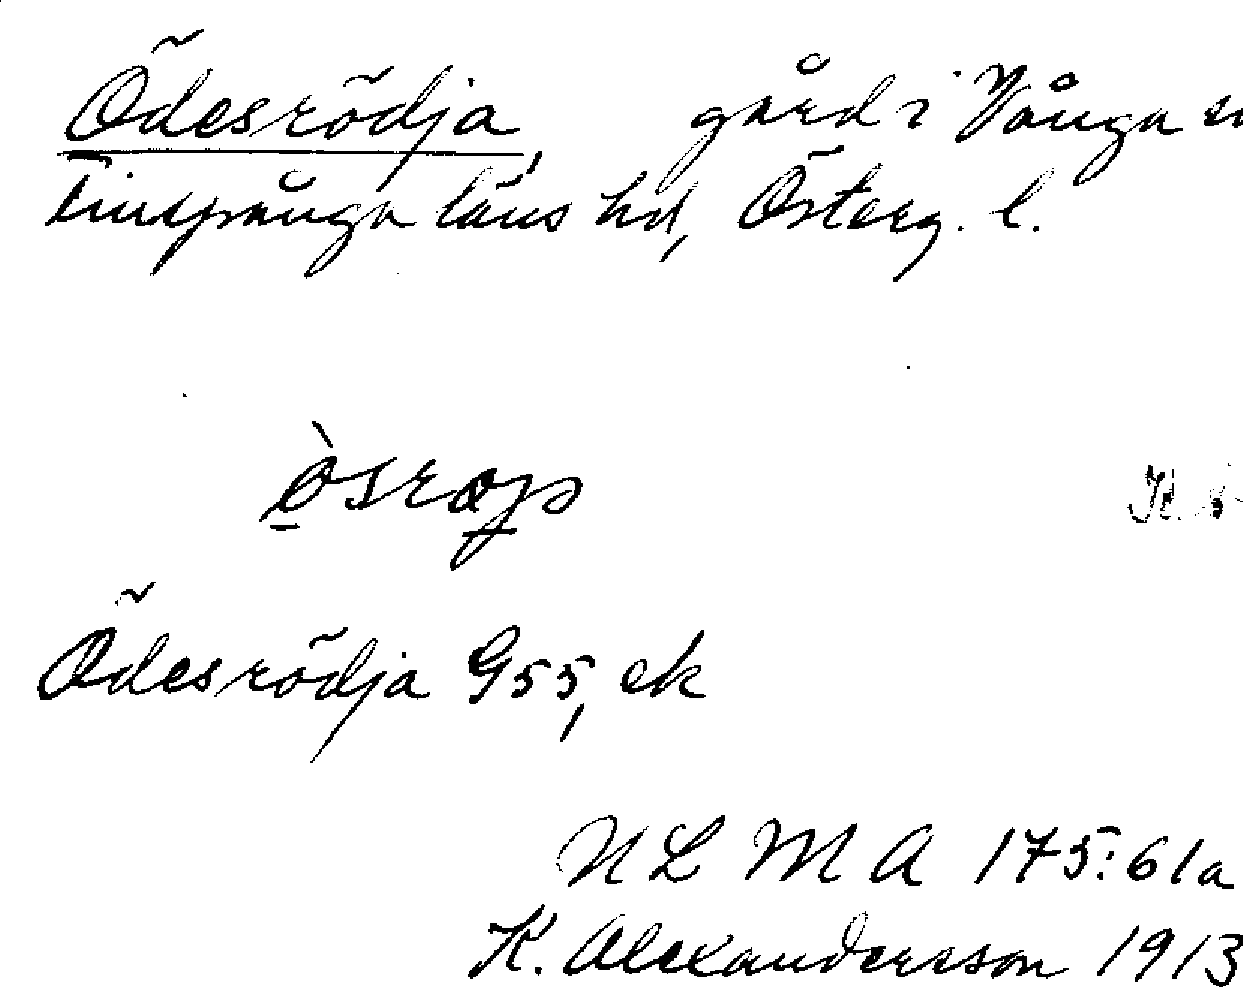 Ödesrödja, gård i Vånga
Finspånga läns hd, Österg. l.
Ödesrödja G55, ek
N L M A 175:61a
K. Alexandersson 1913